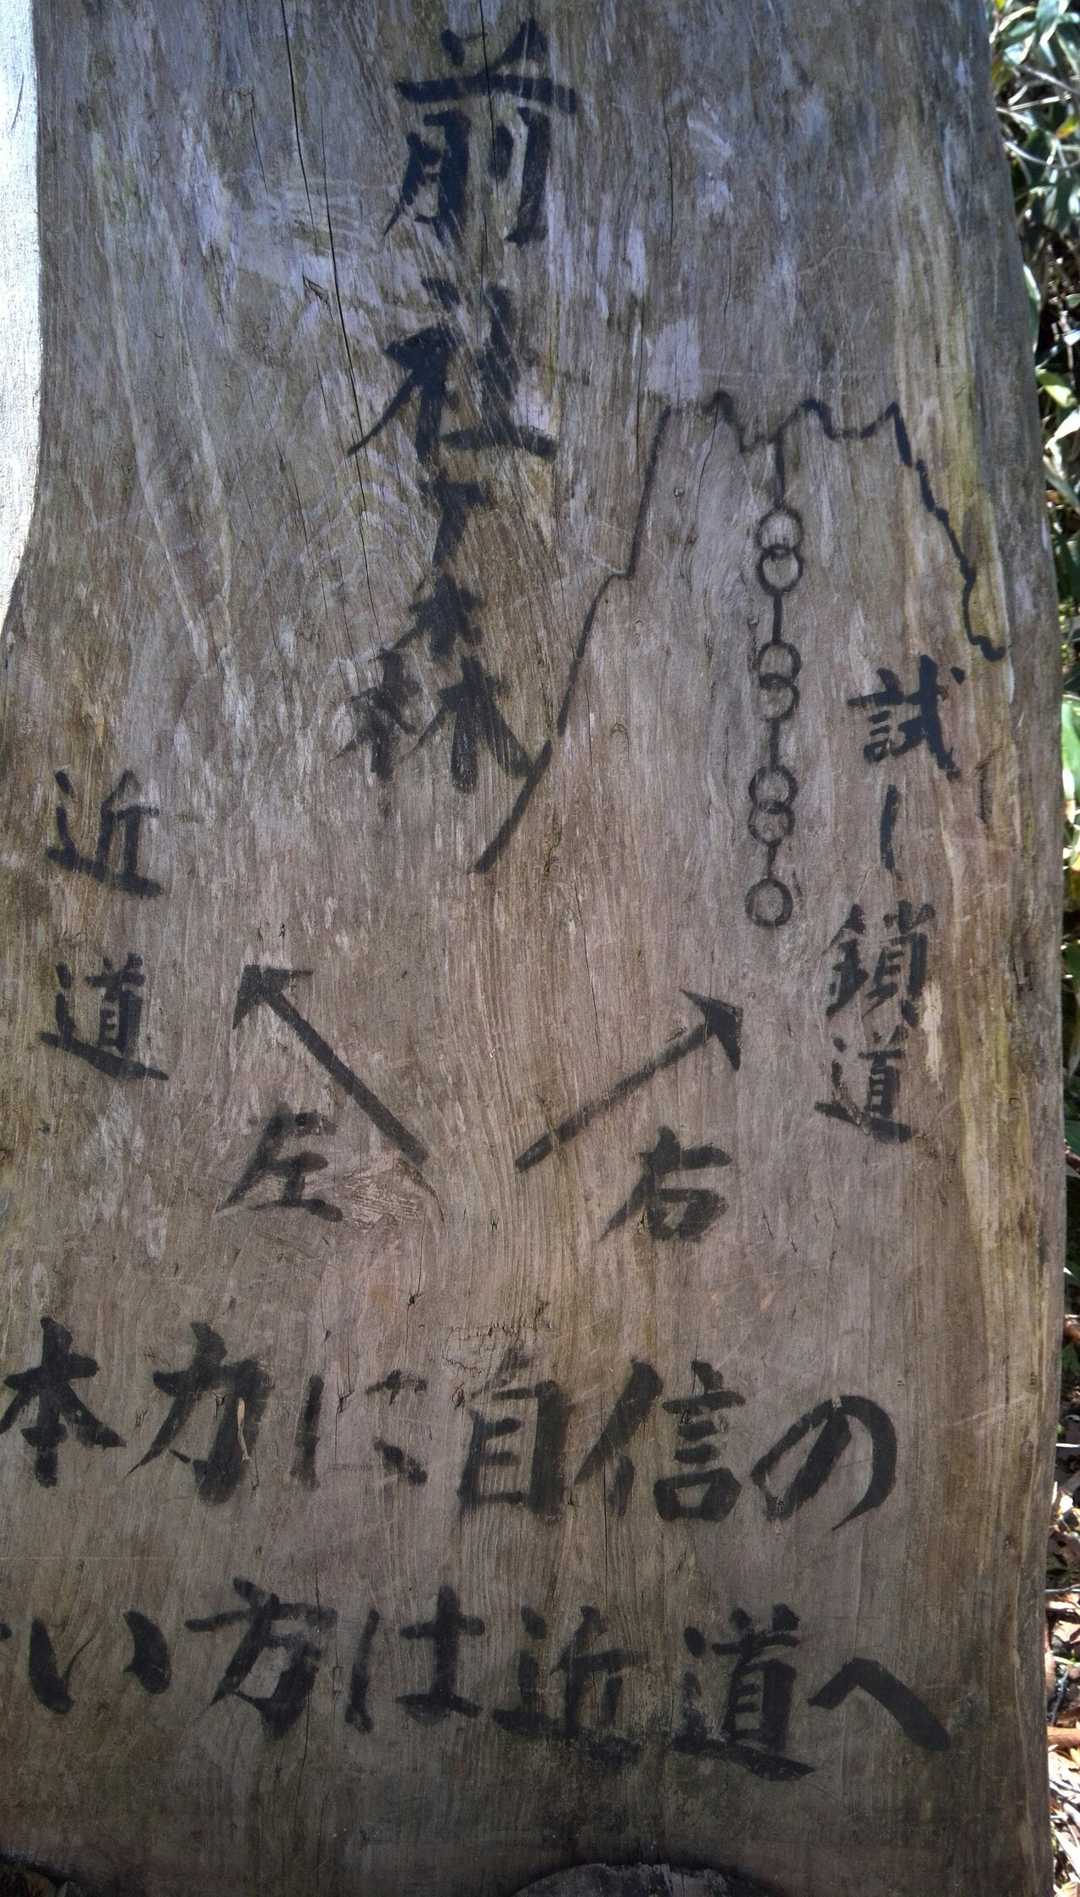 前社ヶ森
試し鎖道
近道
左
右
本力に自信の
い方は近道へ